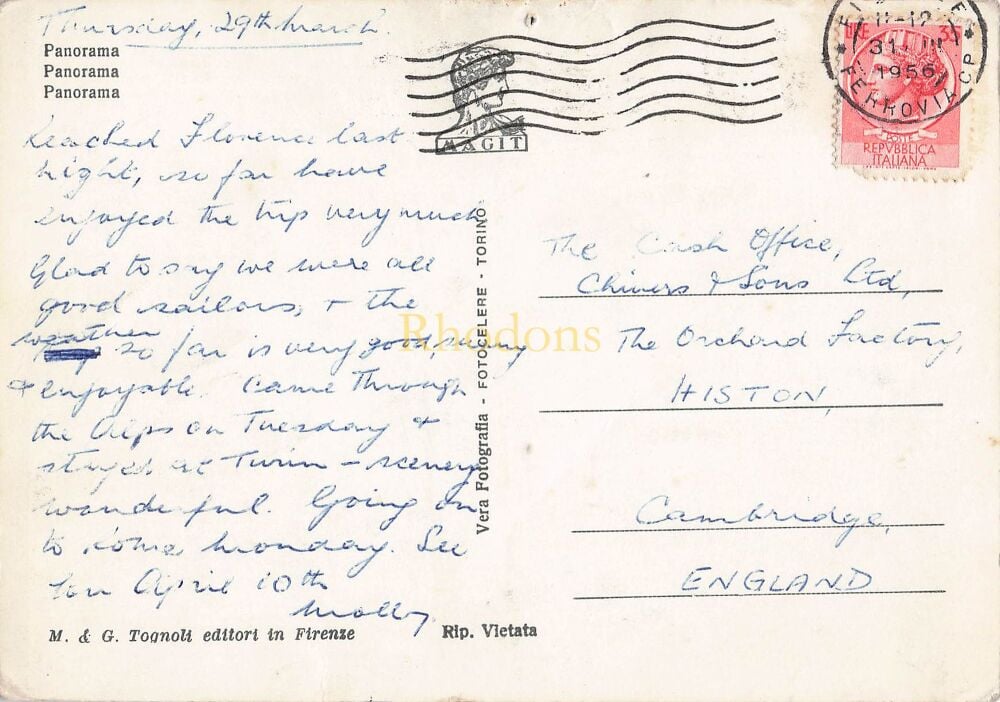 Thursday, 29th March.
Panorama
Panorama
Panorama
Reached Florence last
night, so far have
enjoyed the trip very much
Glad to say we were all
good sailors, & the
weather
so far is very good sunny
& enjoyable. Came through
the Alps on Tuesday &
stayed at Turin - scenery
wonderful. Going on
to Rome Monday. See
you April 10th
Molly.
M. & G. Tognoli editori in Firenze
Rip. Vietata
Vera Fotografia - FOTOCELERE - TORINO
Rhodons
MAGIT
11-12
31 III
1956
FERROVIA CP
LIRE 35
POSTE
REPVBBLICA
ITALIANA
The Cash Office,
Chivers & Sons Ltd,
The Orchard Factory,
HISTON,
Cambridge,
ENGLAND